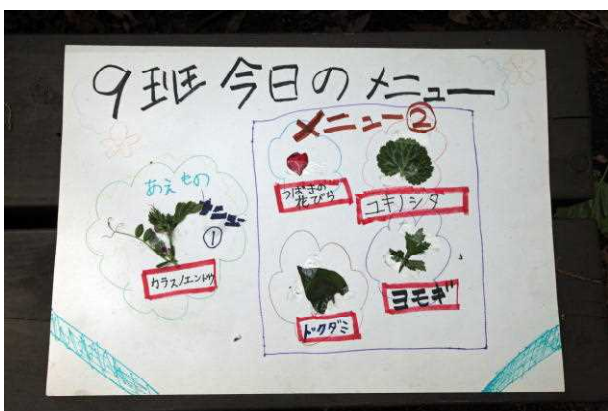 9班 今日のメニュー
あえもの
メニュー
①
カラスノエンドウ
メニュー②
つばきの
花びら
ユキノシタ
ドクダミ
ヨモギ